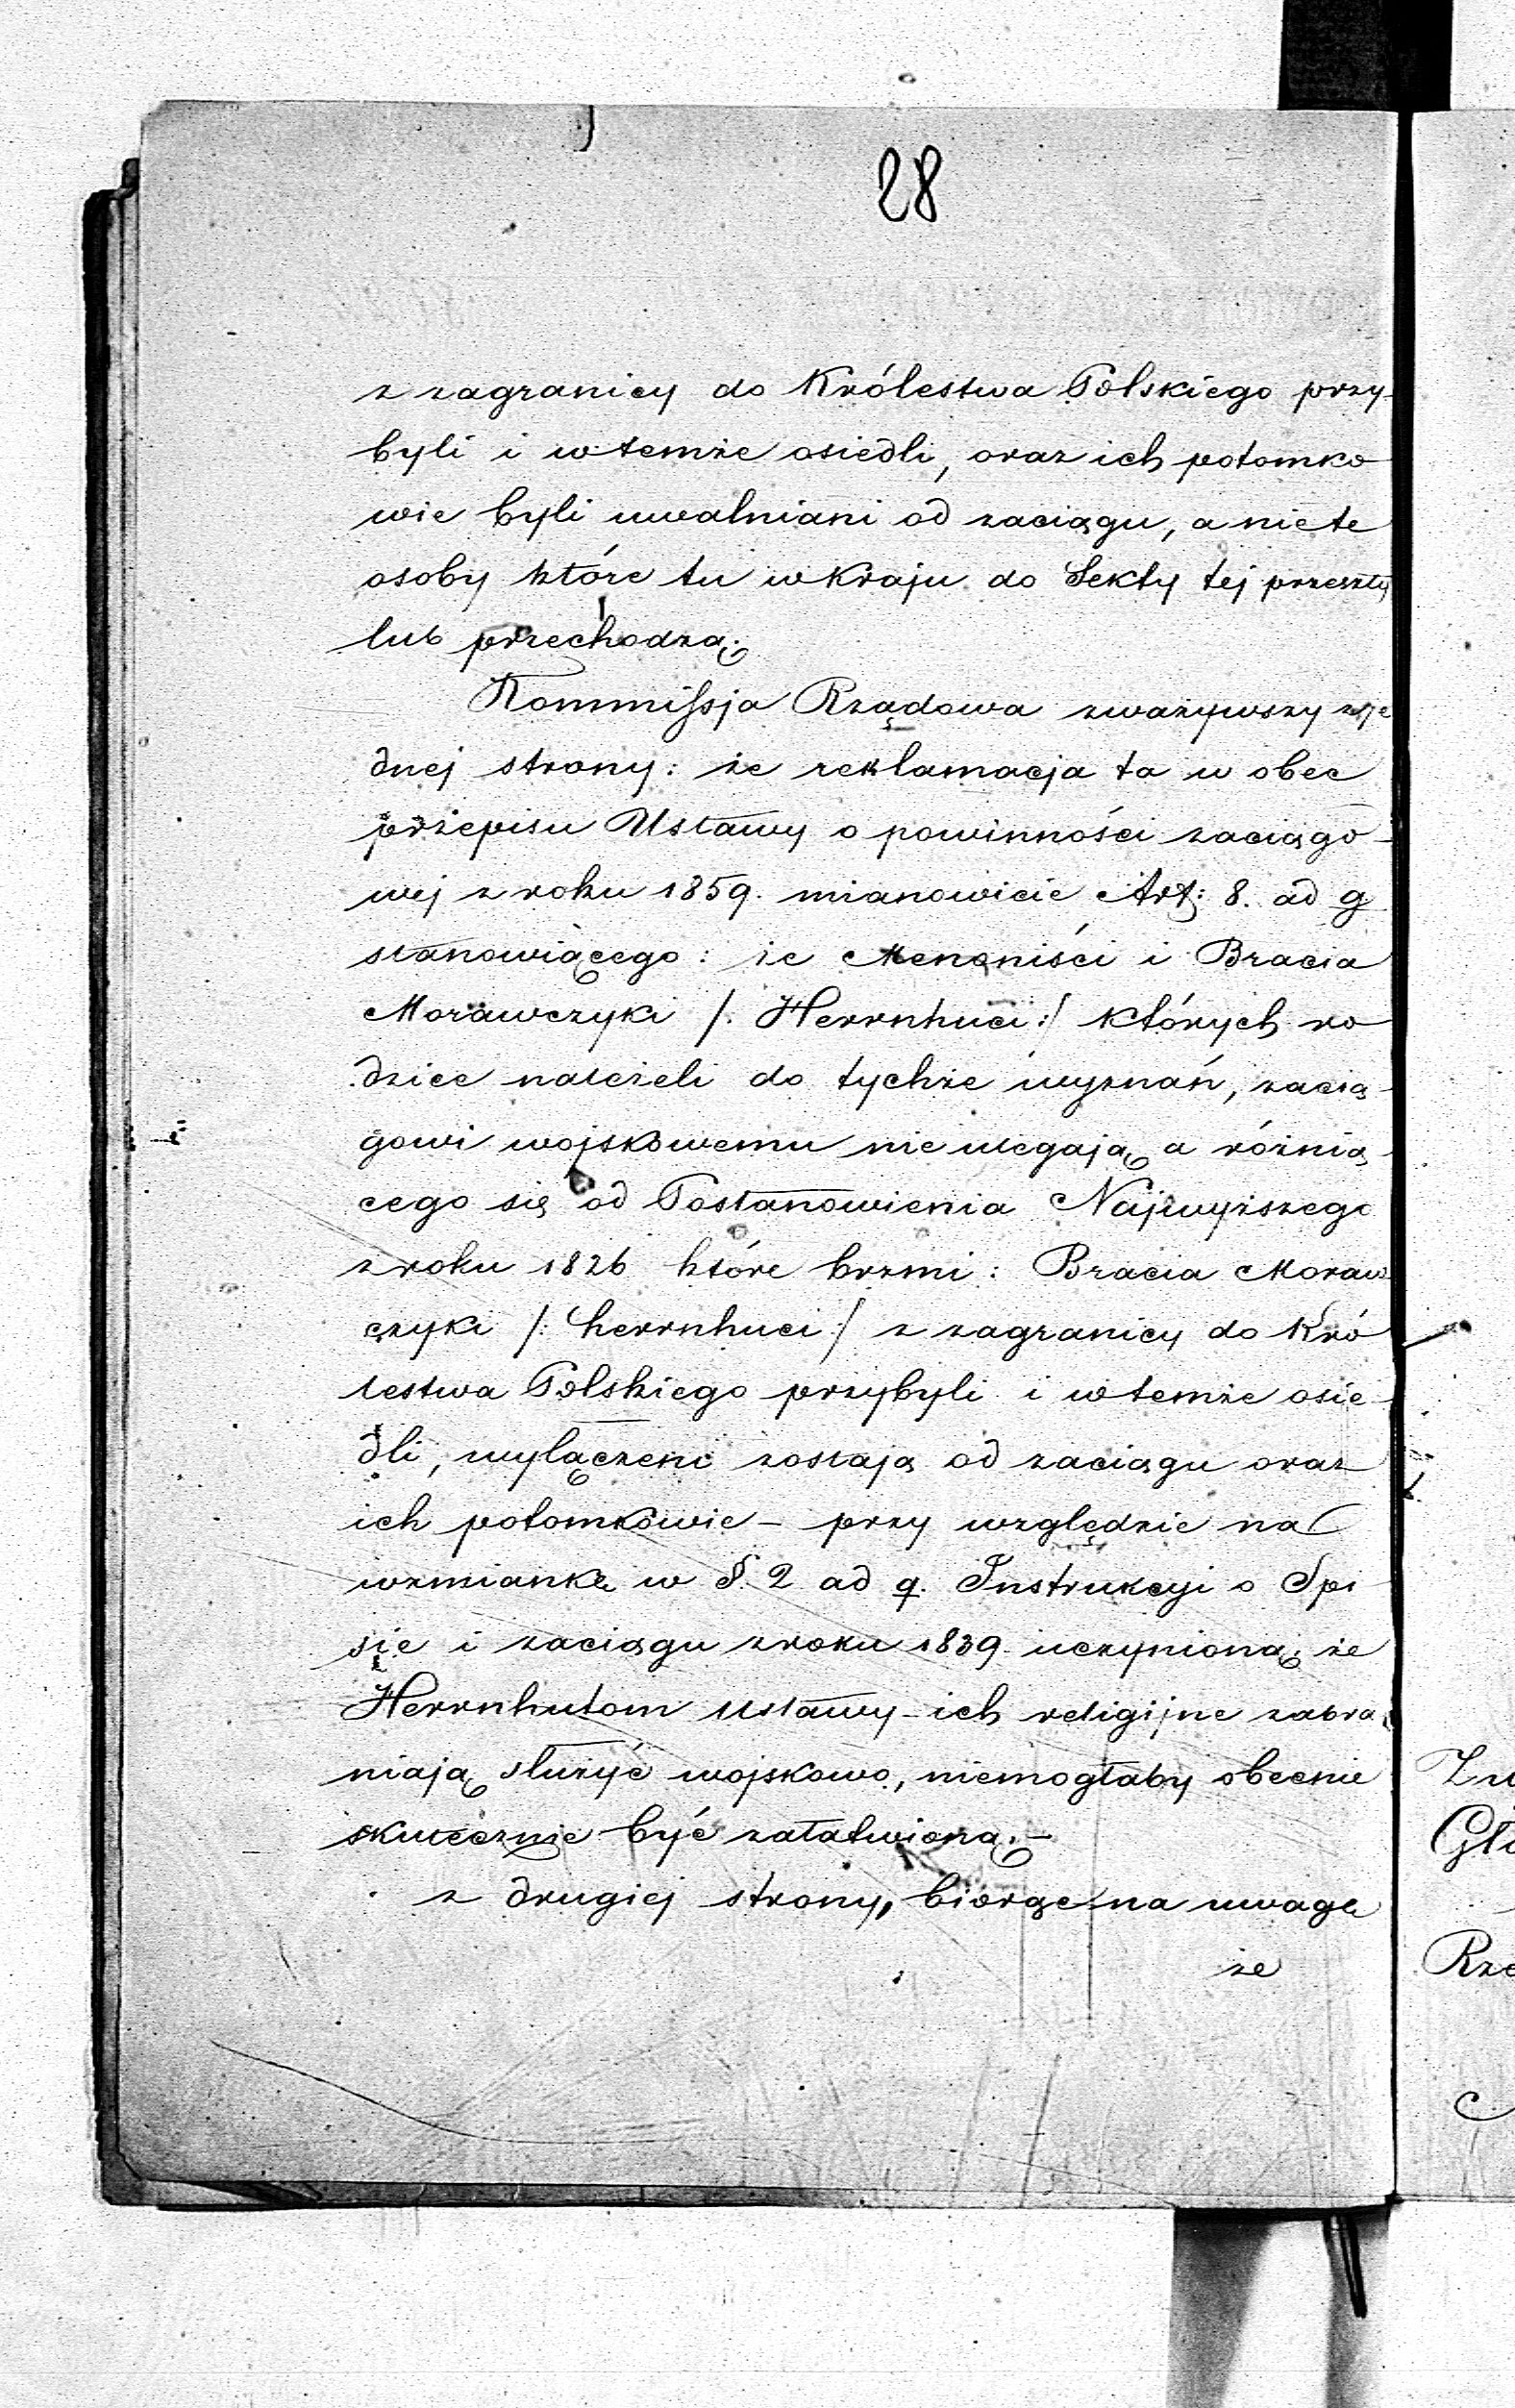 28
z zagranicy do Królestwa Polskiego przy-
byli i w temże osiedli, oraz ich potomko
wie byli uwalniani od zaciągu, a nie te
osoby które tu w kraju do Sekty tej przeszły
lub przechodzą.
Kommissja Rządowa zważywszy z je
dnej strony: że reklamacja ta w obec
przepisu Ustawy o powinności zaciągo-
wej z roku 1859. mianowicie Art: 8. ad g
stanowiącego: że Menoniści i Bracia
Morawczyki /: Herrnhuci :/ których ro
dzice należeli do tychże wyznań, zacią-
gowi wojskowemu nie ulegają, a różnią-
cego się od Postanowienia Najwyższego
z roku 1826 które brzmi: Bracia Moraw
czyki /: herrnhuci :/ z zagranicy do Kró
lestwa Polskiego przybyli i w temże osie-
dli, wyłączeni zostają od zaciągu oraz
ich potomkowie – przy względzie na
wzmiankę w § 2 ad q. Instrukcyi o Spi
sie i zaciągu z roku 1839 uczynioną, że
Herrnhutom Ustawy ich religijne zabra
niają służyć wojskowo, niemogłaby obecnie
skutecznie być załatwioną. –
z drugiej strony, biorąc na uwagę
że
Rzą